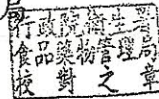 局
行政院衛生署
食品藥物管理局
校對之章